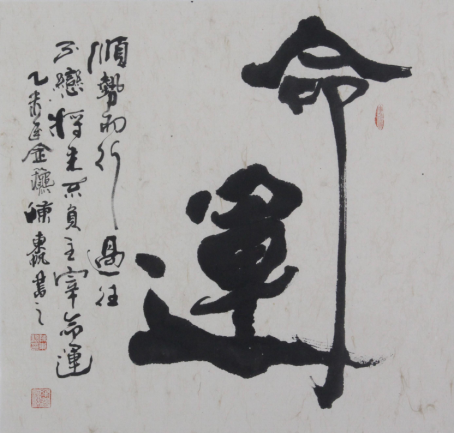 命運
順勢而行過往
不戀將来不負主宰命運
乙未年金陳書之